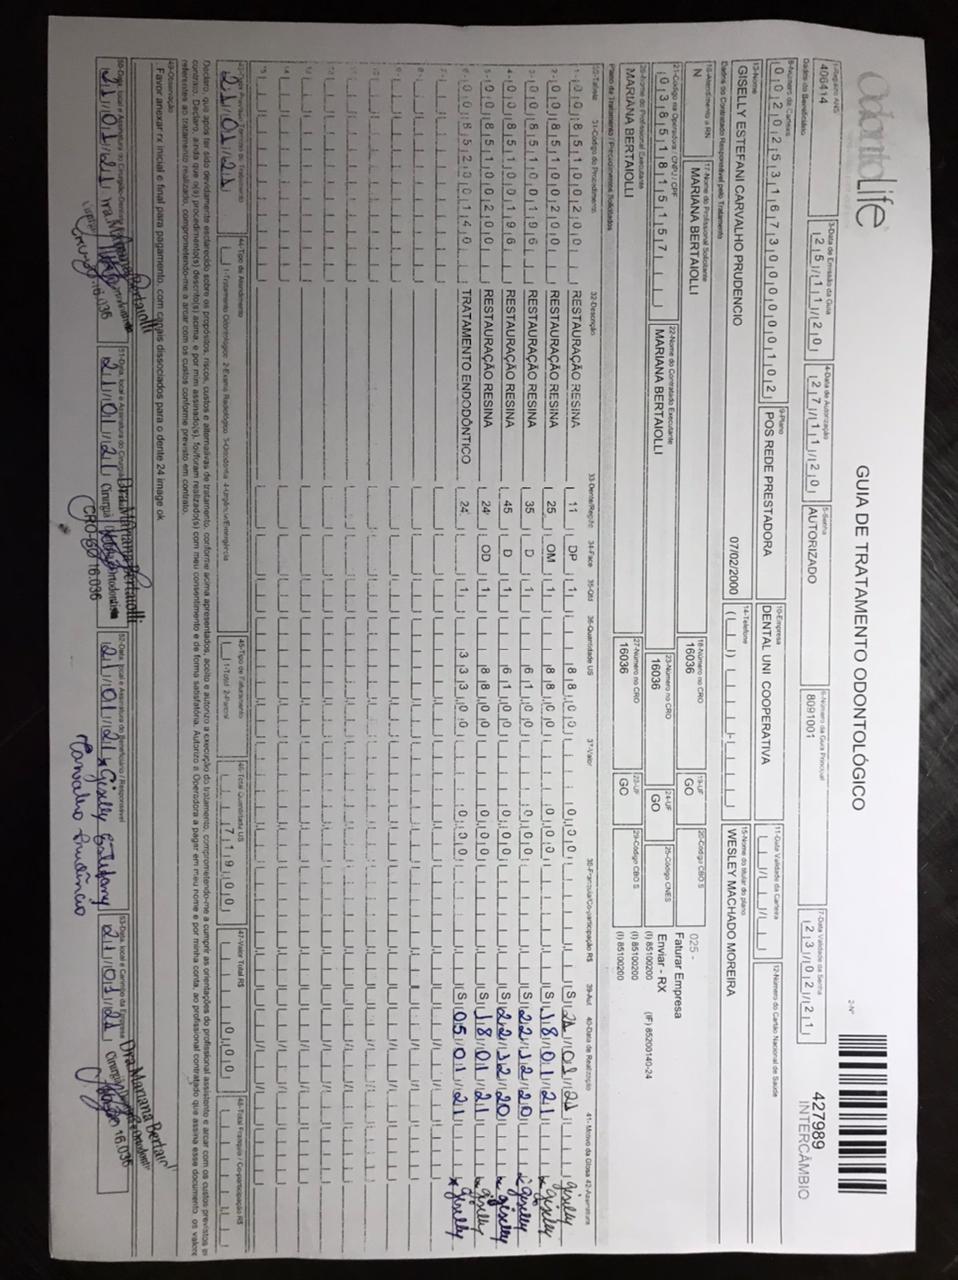 OdontoLife
GUIA DE TRATAMENTO ODONTOLÓGICO
2-Nº
427989
INTERCÂMBIO
1-Registro ANS
406414
3-Data de Emissão da Guia
25/11/20
4-Data de Autorização
27/11/20
5-Senha
AUTORIZADO
6-Número da Guia Principal
8091001
7-Data Validade da Senha
23/02/21
Dados do Beneficiário
8-Número da Carteira
00202531673000000102
9-Plano
POS REDE PRESTADORA
10-Empresa
DENTAL UNI COOPERATIVA
11-Data Validade da Carteira
12-Número do Cartão Nacional de Saúde
13-Nome
GISELLY ESTEFANI CARVALHO PRUDENCIO
07/02/2000
14-Telefone
15-Nome do titular do plano
WESLEY MACHADO MOREIRA
Dados do Contratado Responsável pelo Tratamento
16-Atendimento a RN
N
17-Nome do Profissional Solicitante
MARIANA BERTAIOLLI
18-Número no CRO
16036
19-UF
GO
20-Código CBO S
025 -
Faturar Empresa
Enviar - RX
21-Código na Operadora / CNPJ / CPF
03851815157
22-Nome do Contratado Executante
MARIANA BERTAIOLLI
23-Número no CRO
16036
24-UF
GO
25-Código CNES
26-Nome do Profissional Executante
MARIANA BERTAIOLLI
27-Número no CRO
16036
GO
29-Código CBO S
(I) 85100200 (IF) 85200140-24
(I) 85100200
(I) 85100200
Plano de Tratamento / Procedimentos Solicitados
30-Tabela 31-Código do Procedimento 32-Descrição 33-Dente/Região 34-Face 35-Qtd 36-Quantidade US 37-Valor 38-Franquia/Co-participação R$ 39-Aut 40-Data de Realização 41-Motivo da Glosa 42-Assinatura
1- 00 85100200 RESTAURAÇÃO RESINA 11 DP 1 88,00 0,00 S 21/01/21 Giselly
2- 00 85100200 RESTAURAÇÃO RESINA 25 OM 1 88,00 0,00 S 18/01/21 Giselly
3- 00 85100196 RESTAURAÇÃO RESINA 35 D 1 61,00 0,00 S 22/12/20 Giselly
4- 00 85100196 RESTAURAÇÃO RESINA 45 D 1 61,00 0,00 S 22/12/20 Giselly
5- 00 85100200 RESTAURAÇÃO RESINA 24 OD 1 88,00 0,00 S 18/01/21 Giselly
6- 00 85200140 TRATAMENTO ENDODÔNTICO 24 1 333,00 0,00 S 05/01/21 Giselly
21/01/21
44-Tipo de Atendimento
1-Tratamento Odontológico 2-Exame Radiológico 3-Ortodontia 4-Urgência/Emergência
45-Tipo de Faturamento
1-Total 2-Parcial
46-Total Quantidade US
719,00
47-Valor Total R$
0,00
48-Total Franquia / Co-participação R$
Declaro, que após ter sido devidamente esclarecido sobre os propósitos, riscos, custos e alternativas de tratamento, conforme acima apresentados, aceito e autorizo a execução do tratamento, comprometendo-me a cumprir as orientações do profissional assistente e arcar com os custos previstos em
contrato. Declaro, ainda que o(s) procedimento(s) descrito(s) acima, e por mim assinado(s), foi/foram realizado(s) com meu consentimento e de forma satisfatória. Autorizo a Operadora a pagar em meu nome e por minha conta, ao profissional contratado que assina esse documento, os valores
referentes ao tratamento realizado, comprometendo-me a arcar com os custos conforme previsto em contrato.
49-Observação
Favor anexar rx inicial e final para pagamento, com canais dissociados para o dente 24 image ok
21/01/21
21/01/21
52-Data, local e Assinatura do Beneficiário / Responsável
21/01/21 Giselly Estefany
Carvalho Prudêncio
53-Data, local e Carimbo da Empresa
21/01/21
Dra Mariana Bertaiolli
CRO-GO 16.036